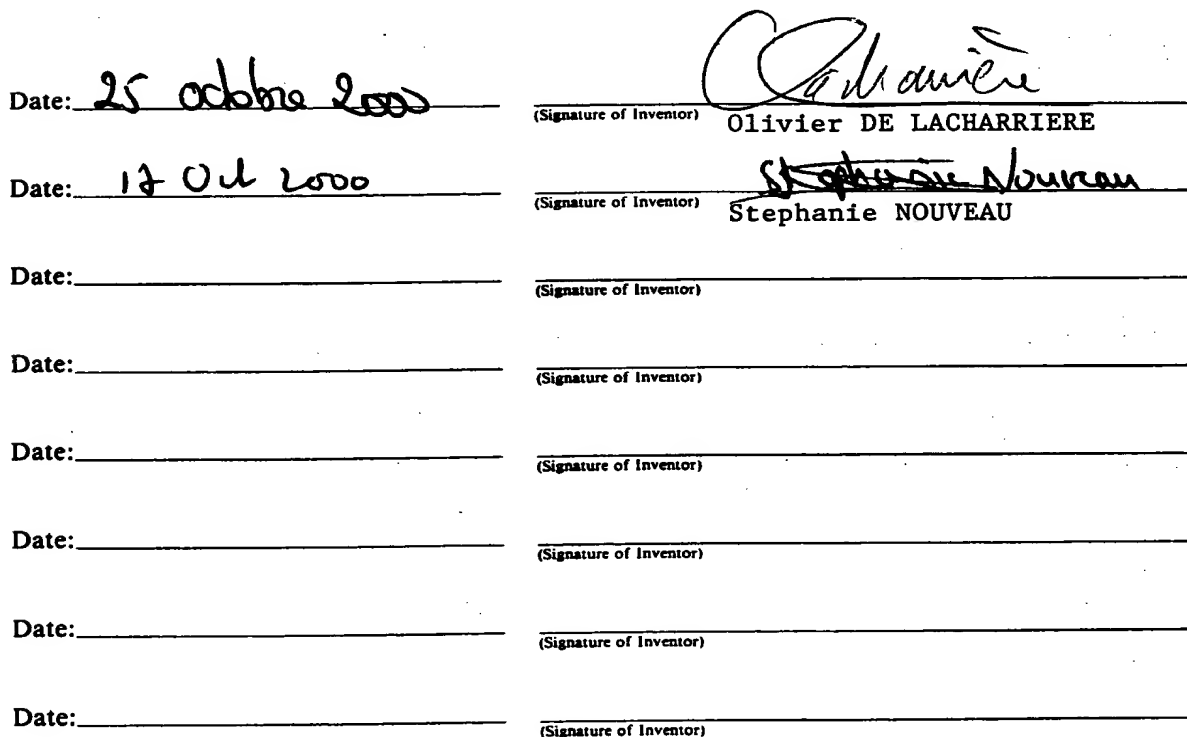 Date: 25 octobre 2000 (Signature of Inventor) Lacharrière
Olivier DE LACHARRIERE
Date: 17 Oct 2000 (Signature of Inventor) Stephanie Nouveau
Stephanie NOUVEAU
Date: (Signature of Inventor)
Date: (Signature of Inventor)
Date: (Signature of Inventor)
Date: (Signature of Inventor)
Date: (Signature of Inventor)
Date: (Signature of Inventor)